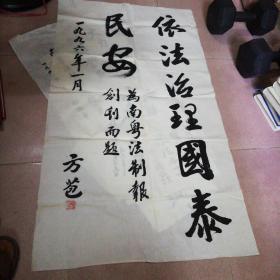 依法治理國泰
民安
為南粤法制報
創刊而題
一九九六年一月
方苞